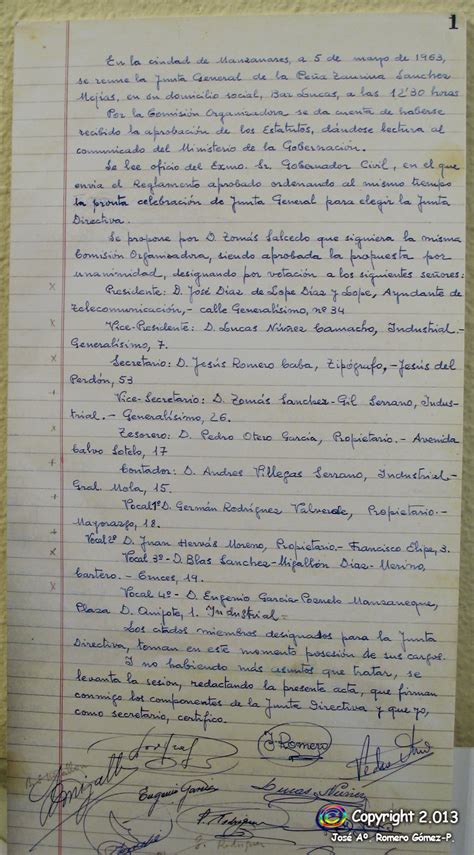 1
En la ciudad de Manzanares, a 5 de mayo de 1963,
se reune la Junta General de la Peña Taurina Sanchez
Mejías, en su domicilio social, Bar Lucas, a las 12'30 horas
Por la Comisión Organizadora se da cuenta de haberse
recibido la aprobación de los Estatutos, dándose lectura al
comunicado del Ministerio de la Gobernación.
Se lee oficio del Exmo. Sr. Gobernador Civil, en el que
envia el Reglamento aprobado ordenando al mismo tiempo
la pronta celebración de Junta General para elegir la Junta
Directiva.
Se propone por D. Tomás Salcedo que siguiera la misma
Comisión Organizadora, siendo aprobada la propuesta por
unanimidad, designando por votación a los siguientes señores:
x Presidente: D. José Diaz de Lope Diaz y Lope, Ayudante de
Telecomunicación,- calle Generalísimo, nº 34
x Vice-Presidente: D. Lucas Núñez Camacho, Industrial.-
Generalísimo, 7.
x Secretario: D. Jesús Romero Caba, Tipógrafo,-Jesús del
Perdón, 53
+ Vice-Secretario: D. Tomás Sanchez-Gil Serrano, Indus-
trial.- Generalísimo, 26.
+ Tesorero: D. Pedro Otero Garcia, Propietario.- Avenida
Calvo Sotelo, 17
x Contador: D. Andres Villegas Serrano, Industrial-
Gral. Mola, 15.
+ Vocal 1º D. Germán Rodríguez Valverde, Propietario.-
Mayorazgo, 18.
+ Vocal 2º D. Juan Hervás Moreno, Propietario.- Francisco Elipe, 3.
x Vocal 3º- D. Blas Sanchez-Migallón Diaz-Merino,
Cartero.- Cruces, 19.
x Vocal 4º- D. Eugenio Garcia-Pozuelo Manzaneque,
Plaza D. Quijote, 1. Industrial-
Los citados miembros designados para la Junta
Directiva, toman en este momento posesión de sus cargos.
Y no habiendo más asuntos que tratar, se
levanta la sesion, redactando la presente acta, que firman
conmigo los componentes de la Junta Directiva y que yo,
como secretario, certifico.
J. Romero
Pedro Otero
Eugenio Garcia
Lucas Nuñez
Copyright 2.013
José Aº. Romero Gómez-P.